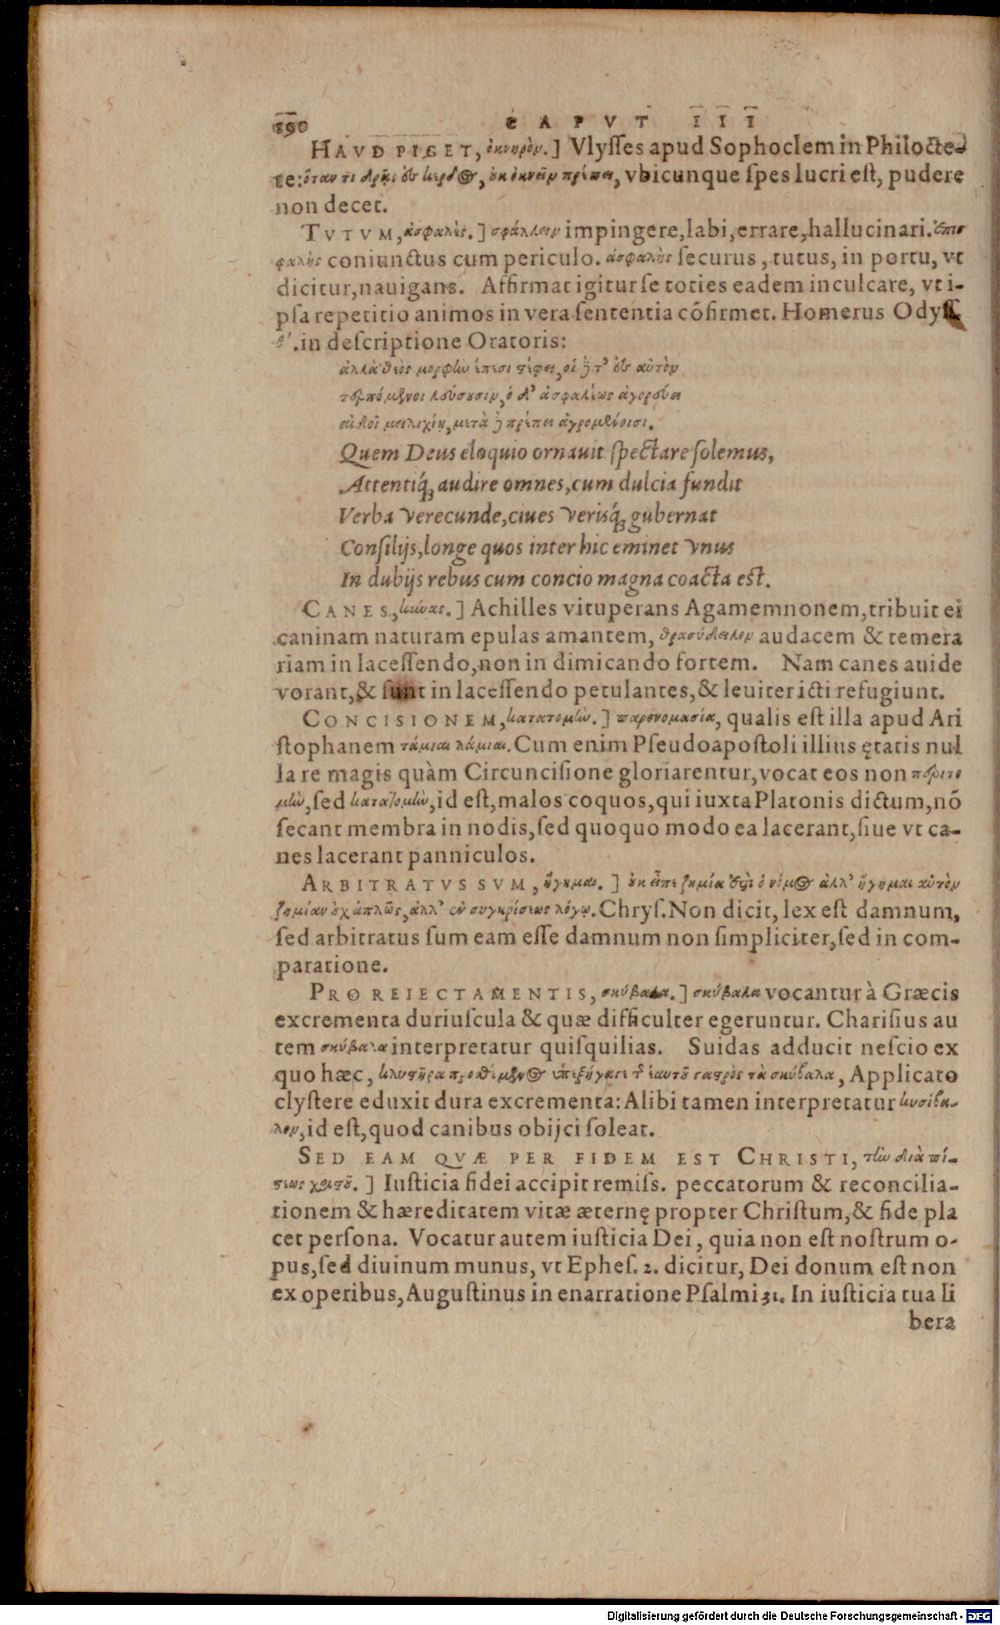 190 CAPVT III
HAVD PIGET, ὀκνηρὸν.] Vlysses apud Sophoclem in Philocte-
te: ὅταν τι δρᾷς εἰς κέρδος, οὐκ ὀκνεῖν πρέπει, vbicunque spes lucri est, pudere
non decet.
TVTVM, ἀσφαλὲς.] σφάλλειν impingere, labi, errare, hallucinari. ἐπισ
φαλὴς coniunctus cum periculo. ἀσφαλὴς securus, tutus, in portu, vt
dicitur, nauigans. Affirmat igitur se toties eadem inculcare, vt i-
psa repetitio animos in vera sententia cõfirmet. Homerus Odyss.
θ'. in descriptione Oratoris:
ἀλλὰ θεὸς μορφὴν ἔπεσι στέφει, οἱ δέ τ' εἰς αὐτὸν
τερπόμενοι λεύσουσιν, ὁ δ' ἀσφαλέως ἀγορεύει
αἰδοῖ μειλιχίῃ, μετὰ δὲ πρέπει ἀγρομένοισι.
Quem Deus eloquio ornauit spectare solemus,
Attentiq́ue audire omnes, cum dulcia fundit
Verba verecunde, ciues verisq́ue gubernat
Consilijs, longe quos inter hic eminet vnus
In dubijs rebus cum concio magna coacta est.
CANES, κύνας.] Achilles vituperans Agamemnonem, tribuit ei
caninam naturam epulas amantem, θρασύδειλον audacem & temera
riam in lacessendo, non in dimicando fortem. Nam canes auide
vorant, & sunt in lacessendo petulantes, & leuiter icti refugiunt.
CONCISIONEM, κατατομὴν.] παρονομασία, qualis est illa apud Ari
stophanem ταμίαι λάμιαι. Cum enim Pseudoapostoli illius ętatis nul
la re magis quàm Circuncisione gloriarentur, vocat eos non περιτο
μὴν, sed κατατομὴν, id est, malos coquos, qui iuxta Platonis dictum, nõ
secant membra in nodis, sed quoquo modo ea lacerant, siue vt ca-
nes lacerant panniculos.
ARBITRATVS SVM, ἥγημαι.] οὐκ εἶπε ζημία ἐστὶ ὁ νόμος ἀλλ' ἥγημαι αὐτὸν
ζημίαν οὐχ ἁπλῶς, ἀλλ' ἐν συγκρίσεως λόγῳ. Chrys. Non dicit, lex est damnum,
sed arbitratus sum eam esse damnum non simpliciter, sed in com-
paratione.
PRO REIECTAMENTIS, σκύβαλα.] σκύβαλα vocantur à Græcis
excrementa duriuscula & quæ difficulter egeruntur. Charisius au
tem σκύβαλα interpretatur quisquilias. Suidas adducit nescio ex
quo hæc, κλυστῆρα προσθέμενος ὑπεξήγαγε τῆς ἑαυτοῦ γαστρὸς τὰ σκύβαλα, Applicato
clystere eduxit dura excrementa: Alibi tamen interpretatur κυσίβα-
λον, id est, quod canibus obijci soleat.
SED EAM QVÆ PER FIDEM EST CHRISTI, τὴν διὰ πί-
στεως χριστοῦ.] Iusticia fidei accipit remiss. peccatorum & reconcilia-
tionem & hæreditatem vitæ æternę propter Christum, & fide pla
cet persona. Vocatur autem iusticia Dei, quia non est nostrum o-
pus, sed diuinum munus, vt Ephes. 2. dicitur, Dei donum est non
ex operibus, Augustinus in enarratione Psalmi 31. In iusticia tua li
bera
Digitalisierung gefördert durch die Deutsche Forschungsgemeinschaft - DFG